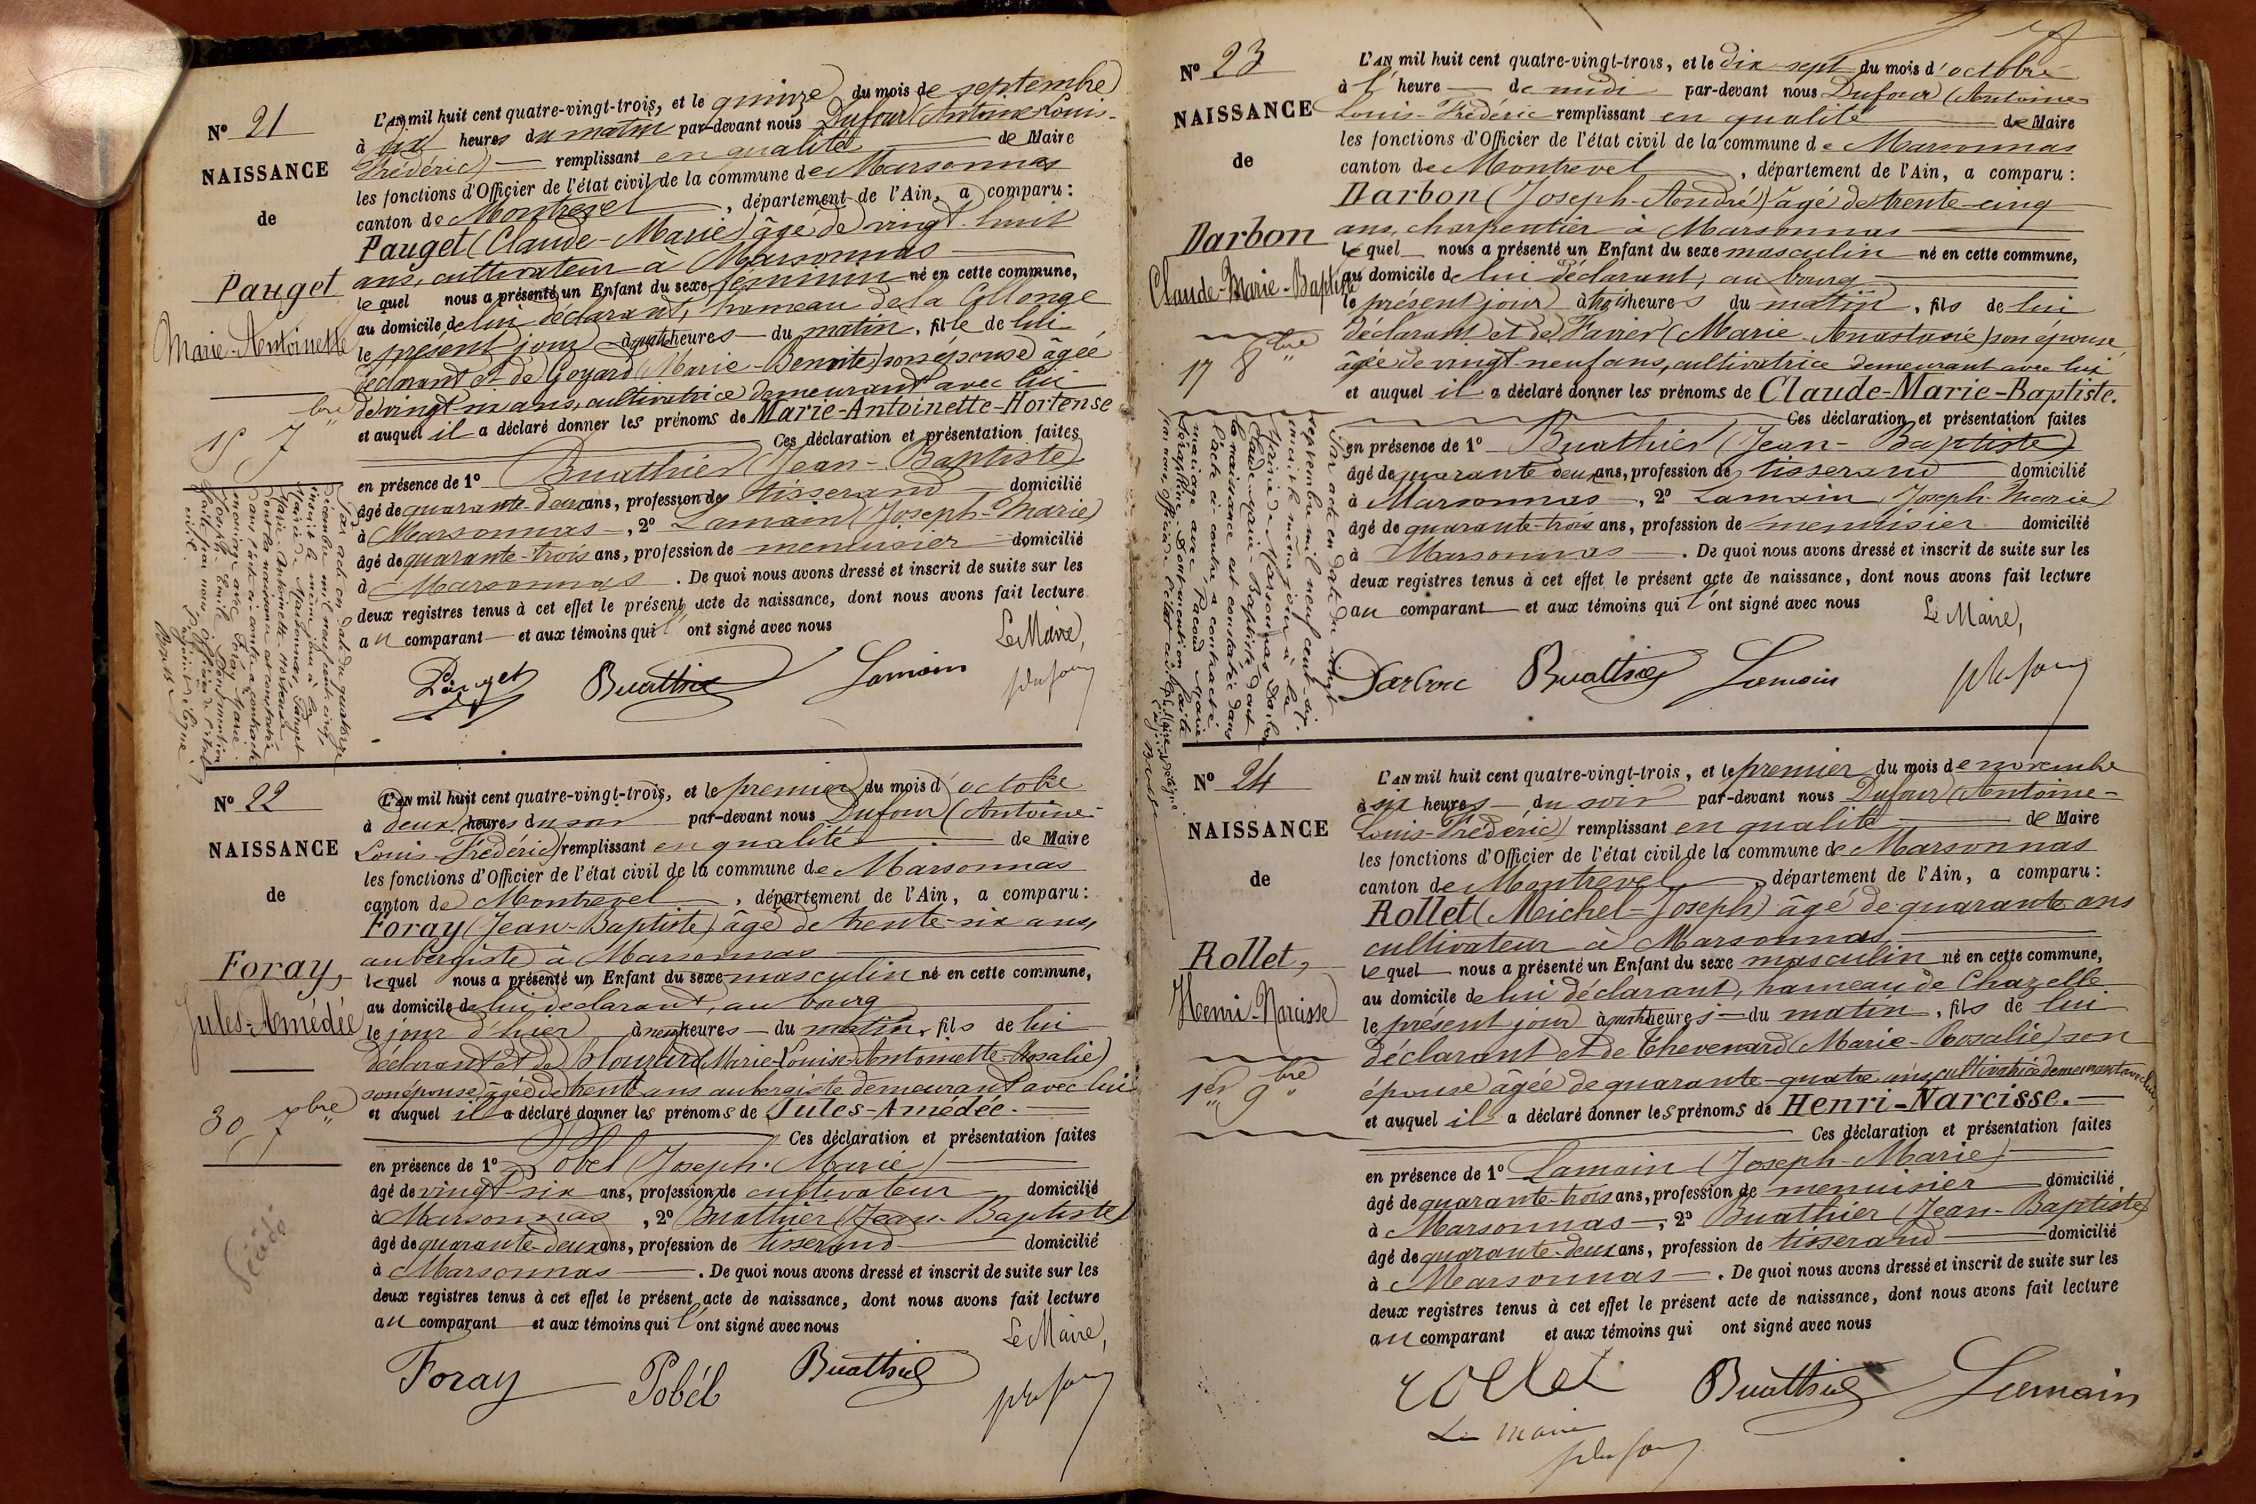 Nº 21
NAISSANCE
de
Pauget
Marie-Antoinette
15 7bre
L'AN mil huit cent quatre-vingt-trois, et le quinze du mois de septembre
à dix heures du matin par-devant nous Dufour (Antoine-Louis-
Frédéric) remplissant en qualité de Maire
les fonctions d'Officier de l'état civil de la commune de Marsonnas
canton de Montrevel, département de l'Ain, a comparu :
Pauget (Claude-Marie) âgé de vingt-huit
ans, cultivateur à Marsonnas
lequel nous a présenté un Enfant du sexe féminin né en cette commune,
au domicile de lui déclarant, hameau de la Collonge
le présent jour à quatre heures du matin, fille de lui
déclarant et de Goyard (Marie-Benoite) son épouse âgée
de vingt un ans, cultivatrice demeurant avec lui
et auquel il a déclaré donner les prénoms de Marie-Antoinette-Hortense
Ces déclaration et présentation faites
en présence de 1º Buathier (Jean-Baptiste)
âgé de quarante-deux ans, profession de tisserand domicilié
à Marsonnas, 2º Lamain (Joseph-Marie)
âgé de quarante-trois ans, profession de menuisier domicilié
à Marsonnas. De quoi nous avons dressé et inscrit de suite sur les
deux registres tenus à cet effet le présent acte de naissance, dont nous avons fait lecture
au comparant et aux témoins qui l'ont signé avec nous
Le Maire,
Pauget Buathier Lamain Dufour
Par acte en date du quatorze
décembre mil neuf cent cinq,
inscrit le même jour à la
Mairie de Marsonnas, Pauget
Marie Antoinette Hortense
dont la naissance est constatée
dans l'acte ci-contre a contracté
mariage avec Foray Marie
Joseph Emile. Dont mention
faite par nous, officier de l'état
civil.
Nº 22
NAISSANCE
de
Foray,
Jules-Amédée
30 7bre
L'AN mil huit cent quatre-vingt-trois, et le premier du mois d'octobre
à deux heures du soir par-devant nous Dufour (Antoine-
Louis-Frédéric) remplissant en qualité de Maire
les fonctions d'Officier de l'état civil de la commune de Marsonnas
canton de Montrevel, département de l'Ain, a comparu :
Foray (Jean-Baptiste) âgé de trente-six ans,
aubergiste à Marsonnas
lequel nous a présenté un Enfant du sexe masculin né en cette commune,
au domicile de lui déclarant, au bourg
le jour d'hier à neuf heures du matin, fils de lui
déclarant et de (Marie-Louise-Antoinette-Rosalie)
son épouse âgée de trente ans aubergiste demeurant avec lui
et auquel il a déclaré donner les prénoms de Jules-Amédée.
Ces déclaration et présentation faites
en présence de 1º Pobel (Joseph-Marie)
âgé de vingt-six ans, profession de cultivateur domicilié
à Marsonnas, 2º Buathier (Jean-Baptiste)
âgé de quarante-deux ans, profession de tisserand domicilié
à Marsonnas. De quoi nous avons dressé et inscrit de suite sur les
deux registres tenus à cet effet le présent acte de naissance, dont nous avons fait lecture
au comparant et aux témoins qui l'ont signé avec nous
Le Maire,
Foray Pobél Buathier Dufour
Nº 23
NAISSANCE
de
Darbon
Claude-Marie-Baptiste
17 8bre
L'AN mil huit cent quatre-vingt-trois, et le dix-sept du mois d'octobre
à l'heure de midi par-devant nous Dufour (Antoine-
Louis-Frédéric remplissant en qualité de Maire
les fonctions d'Officier de l'état civil de la commune de Marsonnas
canton de Montrevel, département de l'Ain, a comparu :
Darbon (Joseph-André) âgé de trente-cinq
ans, charpentier à Marsonnas
lequel nous a présenté un Enfant du sexe masculin né en cette commune,
au domicile de lui déclarant, au bourg
le présent jour à trois heures du matin, fils de lui
déclarant et de Favier (Marie-Anastasie) son épouse
âgée de vingt-neuf ans, cultivatrice demeurant avec lui
et auquel il a déclaré donner les prénoms de Claude-Marie-Baptiste.
Ces déclaration et présentation faites
en présence de 1º Buathier (Jean-Baptiste)
âgé de quarante deux ans, profession de tisserand domicilié
à Marsonnas, 2º Lamain (Joseph-Marie)
âgé de quarante-trois ans, profession de menuisier domicilié
à Marsonnas. De quoi nous avons dressé et inscrit de suite sur les
deux registres tenus à cet effet le présent acte de naissance, dont nous avons fait lecture
au comparant et aux témoins qui l'ont signé avec nous
Le Maire,
Darbon Buathier Lamain Dufour
Par acte en date du vingt
septembre mil neuf cent dix,
inscrit le même jour à la
Mairie de Marsonnas Darbon
Claude-Marie-Baptiste dont
la naissance est constatée dans
l'acte ci-contre a contracté
mariage avec Pacoud Marie
Séraphine. Dont mention faite
par nous, officier de l'état civil
Nº 24
NAISSANCE
de
Rollet,
Henri-Narcisse
1er 9bre
L'AN mil huit cent quatre-vingt-trois, et le premier du mois de novembre
à six heures du soir par-devant nous Dufour (Antoine-
Louis-Frédéric) remplissant en qualité de Maire
les fonctions d'Officier de l'état civil de la commune de Marsonnas
canton de Montrevel, département de l'Ain, a comparu :
Rollet (Michel-Joseph) âgé de quarante ans
cultivateur à Marsonnas
lequel nous a présenté un Enfant du sexe masculin né en cette commune,
au domicile de lui déclarant, hameau de Chazelle
le présent jour à quatre heures du matin, fils de lui
déclarant et de Thevenard (Marie-Rosalie) son
épouse âgée de quarante-quatre ans, cultivatrice demeurant avec lui,
et auquel il a déclaré donner les prénoms de Henri-Narcisse.
Ces déclaration et présentation faites
en présence de 1º Lamain (Joseph-Marie)
âgé de quarante-trois ans, profession de menuisier domicilié
à Marsonnas, 2º Buathier (Jean-Baptiste)
âgé de quarante-deux ans, profession de tisserand domicilié
à Marsonnas. De quoi nous avons dressé et inscrit de suite sur les
deux registres tenus à cet effet le présent acte de naissance, dont nous avons fait lecture
au comparant et aux témoins qui ont signé avec nous
rollet Buathier Lamain
Le Maire
Dufour